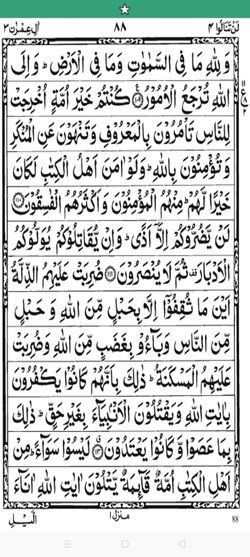 لَنْ تَنَالُوا ٤ ٨٨ اٰلِ عِمْرٰن ٣
وَلِلّٰهِ مَا فِی السَّمٰوٰتِ وَمَا فِی الْاَرْضِ ؕ وَاِلَی
اللّٰهِ تُرْجَعُ الْاُمُوْرُ ﴿۱۰۹﴾ كُنْتُمْ خَیْرَ اُمَّةٍ اُخْرِجَتْ
لِلنَّاسِ تَاْمُرُوْنَ بِالْمَعْرُوْفِ وَتَنْهَوْنَ عَنِ الْمُنْكَرِ
وَتُؤْمِنُوْنَ بِاللّٰهِ ؕ وَلَوْ اٰمَنَ اَهْلُ الْكِتٰبِ لَكَانَ
خَیْرًا لَّهُمْ ؕ مِنْهُمُ الْمُؤْمِنُوْنَ وَاَكْثَرُهُمُ الْفٰسِقُوْنَ ﴿۱۱۰﴾
لَنْ یَّضُرُّوْكُمْ اِلَّاۤ اَذًی ؕ وَاِنْ یُّقَاتِلُوْكُمْ یُوَلُّوْكُمُ
الْاَدْبَارَ ۟ ثُمَّ لَا یُنْصَرُوْنَ ﴿۱۱۱﴾ ضُرِبَتْ عَلَیْهِمُ الذِّلَّةُ
اَیْنَ مَا ثُقِفُوْۤا اِلَّا بِحَبْلٍ مِّنَ اللّٰهِ وَحَبْلٍ
مِّنَ النَّاسِ وَبَآءُوْ بِغَضَبٍ مِّنَ اللّٰهِ وَضُرِبَتْ
عَلَیْهِمُ الْمَسْكَنَةُ ؕ ذٰلِكَ بِاَنَّهُمْ كَانُوْا یَكْفُرُوْنَ
بِاٰیٰتِ اللّٰهِ وَیَقْتُلُوْنَ الْاَنْۢبِیَآءَ بِغَیْرِ حَقٍّ ؕ ذٰلِكَ
بِمَا عَصَوْا وَّكَانُوْا یَعْتَدُوْنَ ﴿۱۱۲﴾ لَیْسُوْا سَوَآءً ؕ مِنْ
اَهْلِ الْكِتٰبِ اُمَّةٌ قَآئِمَةٌ یَّتْلُوْنَ اٰیٰتِ اللّٰهِ اٰنَآءَ
الَّیْلِ منزل ۱ 88